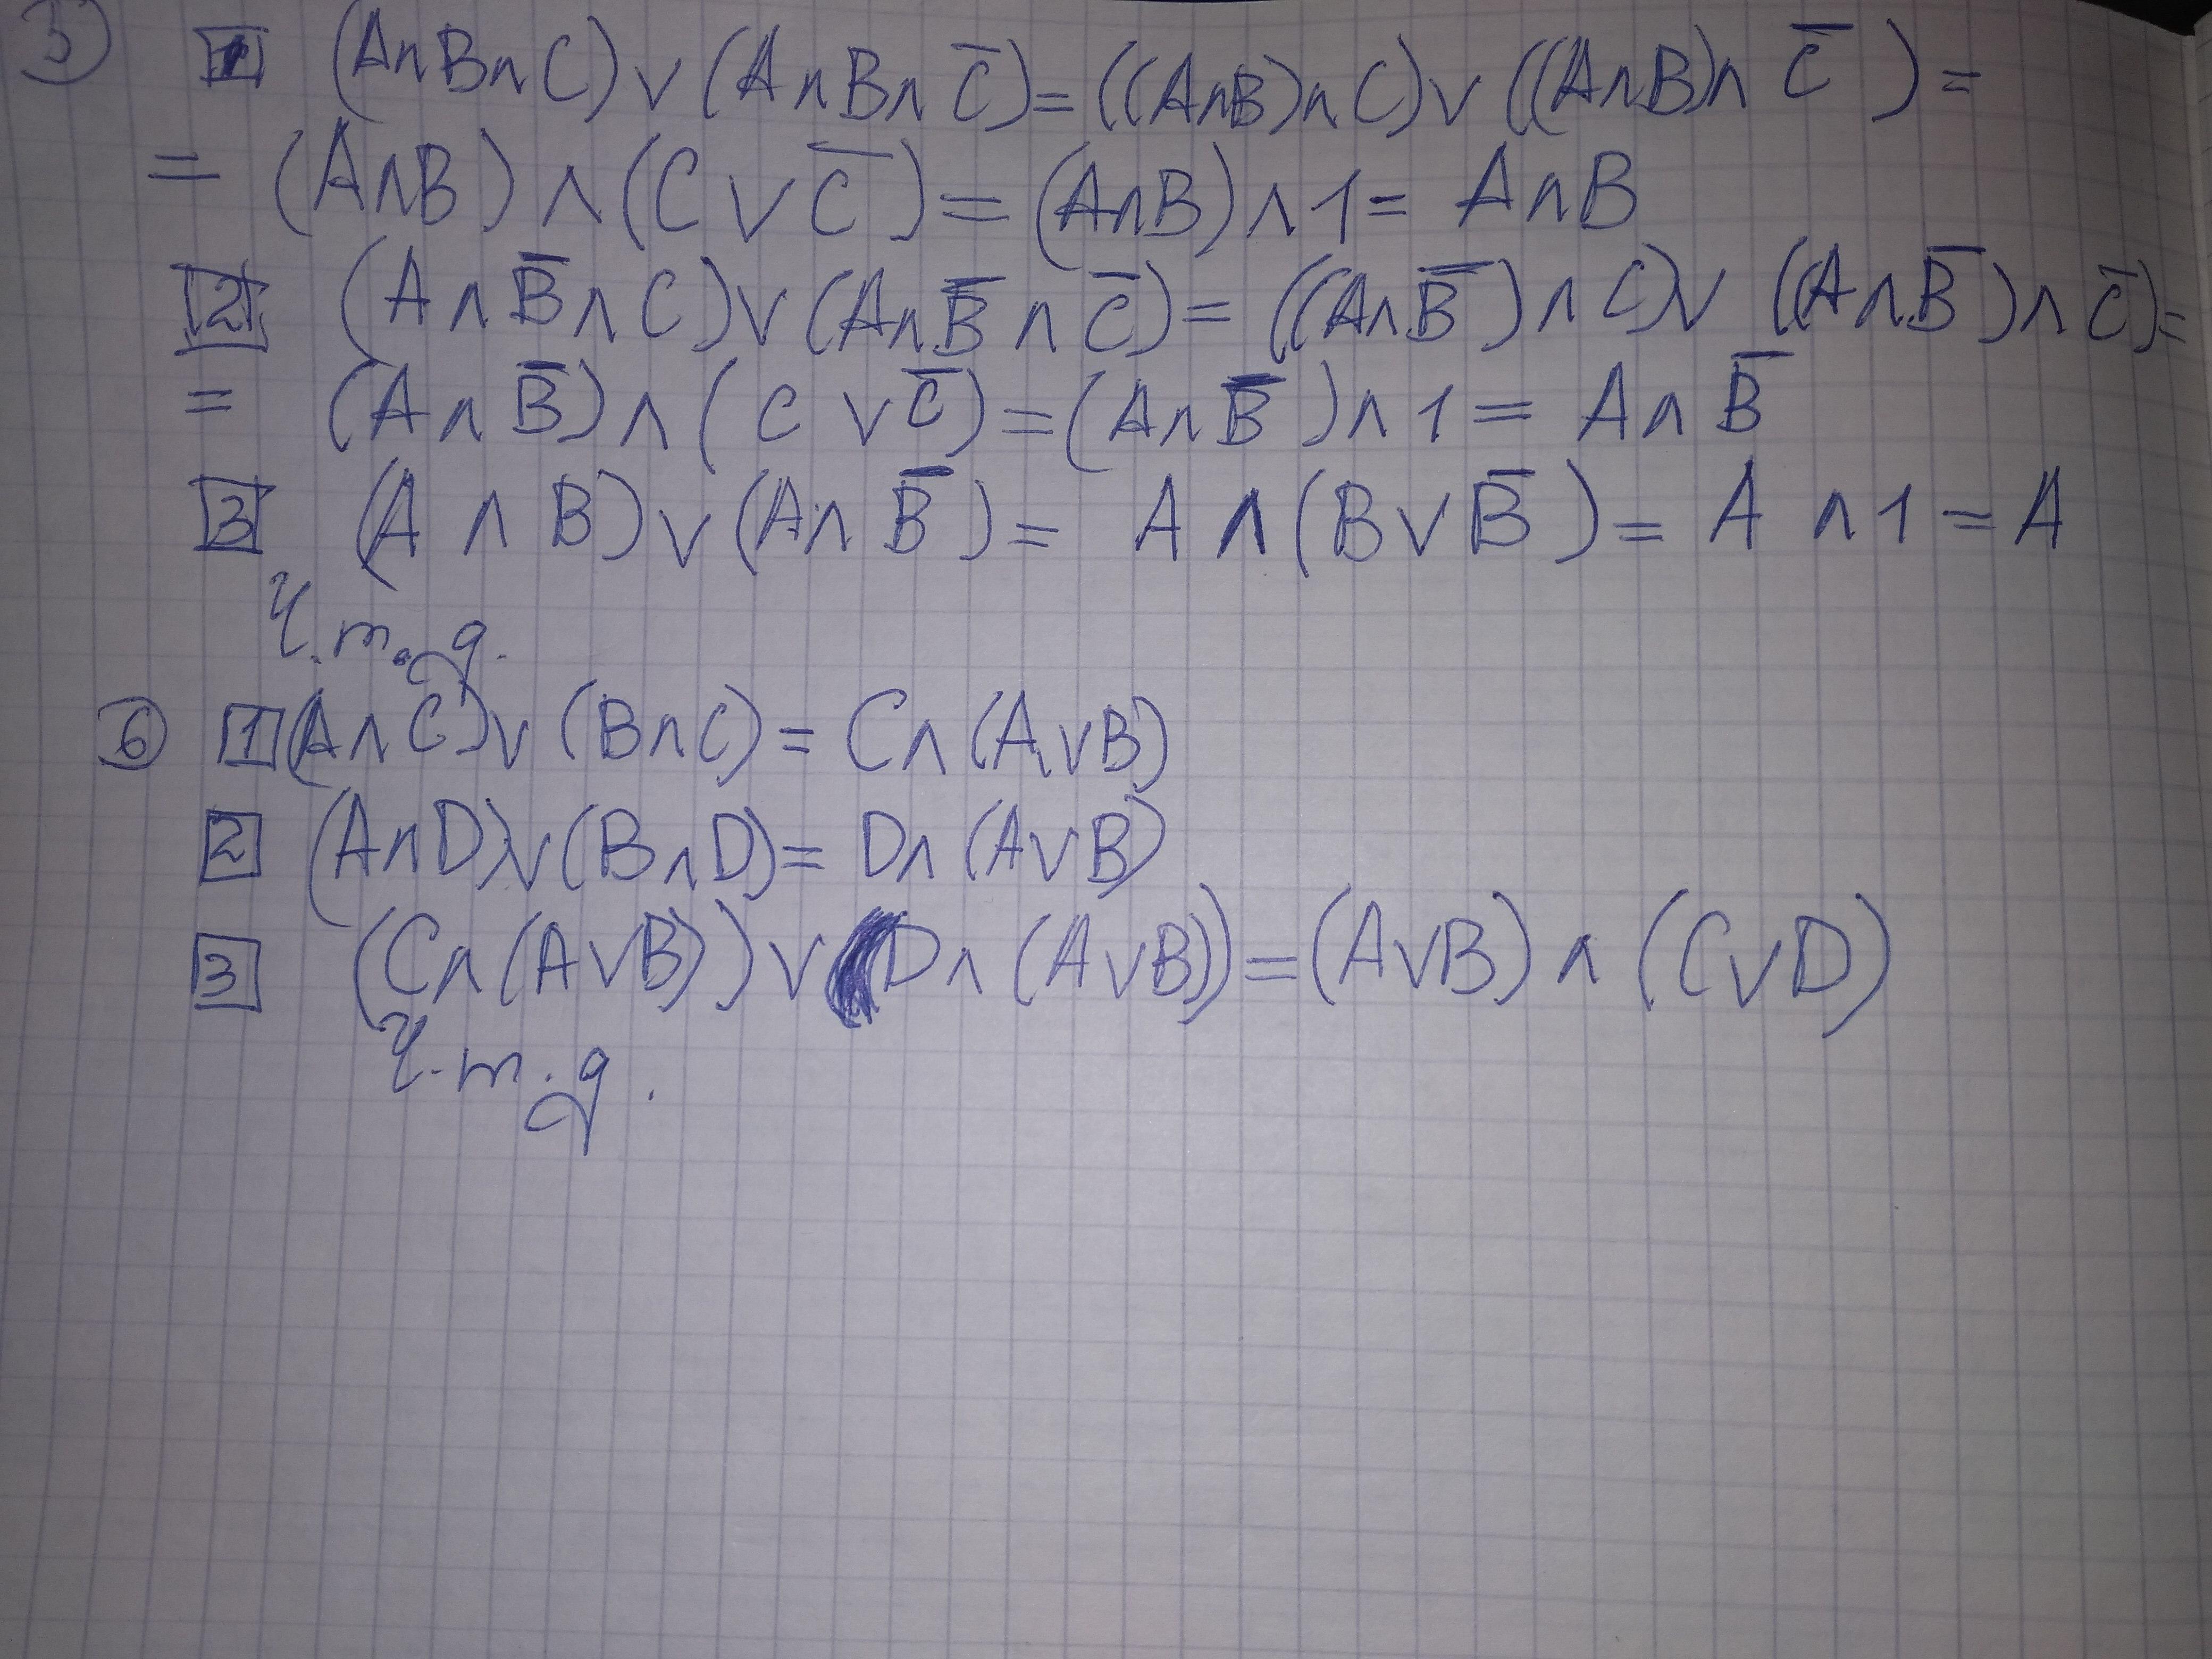 5 1 (A∧B∧C)∨(A∧B∧C̅)=((A∧B)∧C)∨((A∧B)∧C̅)=
= (A∧B)∧(C∨C̅)=(A∧B)∧1= A∧B
2 (A∧B̅∧C)∨(A∧B̅∧C̅)=((A∧B̅)∧C)∨((A∧B̅)∧C̅)=
= (A∧B̅)∧(C∨C̅)=(A∧B̅)∧1= A∧B̅
3 (A∧B)∨(A∧B̅)= A∧(B∨B̅)= A∧1=A
Ч.т.д.
6 1 (A∧C)∨(B∧C)= C∧(A∨B)
2 (A∧D)∨(B∧D)= D∧(A∨B)
3 (C∧(A∨B))∨(D∧(A∨B))=(A∨B)∧(C∨D)
Ч.т.д.